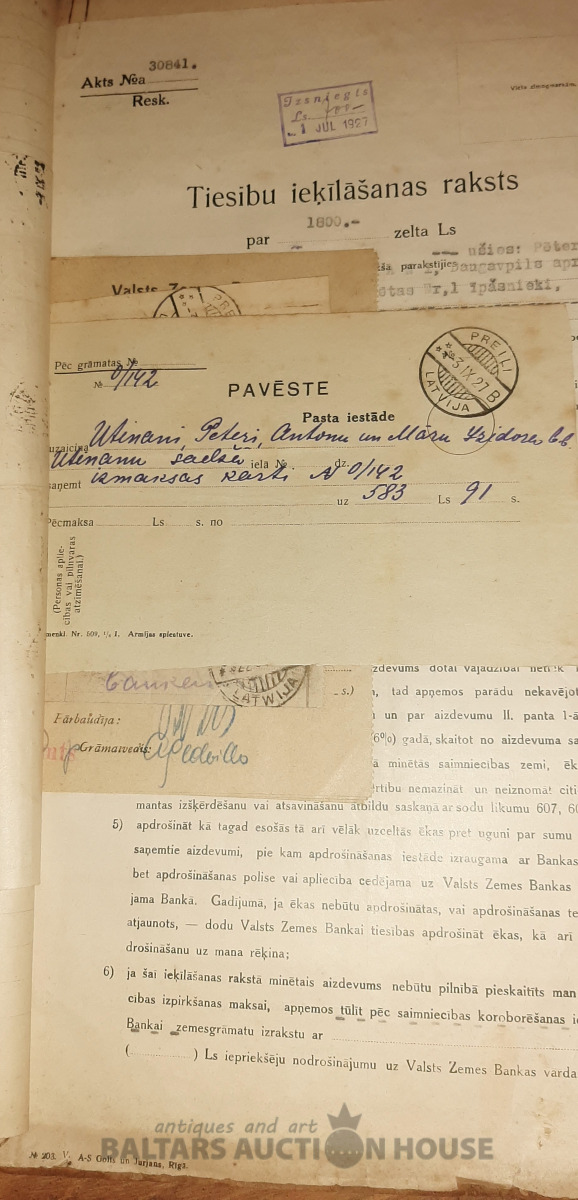 30841.
Akts №a
Resk.
Izsniegts
Ls.
1 JUL 1927
Tiesību ieķīlāšanas raksts
1800.-
par zelta Ls
ušies: Pēter
parakstījies Daugavpils apr
Nr,1 īpašnieki,
Valsts Z
Pēc grāmatas №
№ 0/142
PAVĒSTE
PREIĻI
3 IX 27 B
LATVIJA
Pasta iestāde
uzaicina Utinani, Peteri, Antonu un Māru
Utinanu iela № dz.
saņemt izmaksas karti N 0/142
uz 583 Ls 91 s.
Pēcmaksa Ls s. no
(Personas aplie-
cības vai pilnvaras
atzīmēšanai.)
Nr. 509, Armijas spiestuve.
LATVIJA
s.)
zdevums dotai vajadzībai
, tad apņemos parādu nekavējot
Fārbaudīja:
un par aizdevumu II. panta 1-ā
Grāmatvedis:
(6%) gadā, skaitot no aizdevuma sa
ā minētās saimniecības zemi, ēk
ērtību nemazināt un neiznomāt citi
mantas izšķērdēšanu vai atsavināšanu atbildu saskaņā ar sodu likumu 607, 6
5) apdrošināt kā tagad esošās tā arī vēlāk uzceltās ēkas pret uguni par sumu
saņemtie aizdevumi, pie kam apdrošināšanas iestāde izraugama ar Bankas
bet apdrošināšanas polise vai apliecība cedējama uz Valsts Zemes Bankas
jama Bankā. Gadījumā, ja ēkas nebūtu apdrošinātas, vai apdrošināšanas te
atjaunots, — dodu Valsts Zemes Bankai tiesības apdrošināt ēkas, kā arī
drošināšanu uz mana rēķina;
6) ja šai ieķīlāšanas rakstā minētais aizdevums nebūtu pilnībā pieskaitīts man
cības izpirkšanas maksai, apņemos tūlīt pēc saimniecības koroborēšanas
Bankai zemesgrāmatu izrakstu ar
( ) Ls iepriekšēju nodrošinājumu uz Valsts Zemes Bankas vārda
antiques and art
BALTARS AUCTION HOUSE
№ 203. V. A-S Golts un Jurjans, Rīgā.